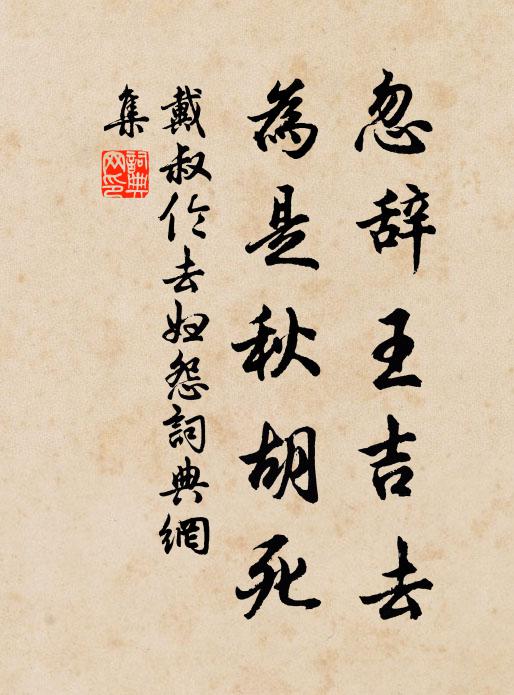 忽辞王吉去
為是秋胡死
戴叔伦去妇怨詞典網
集
詞典
网印